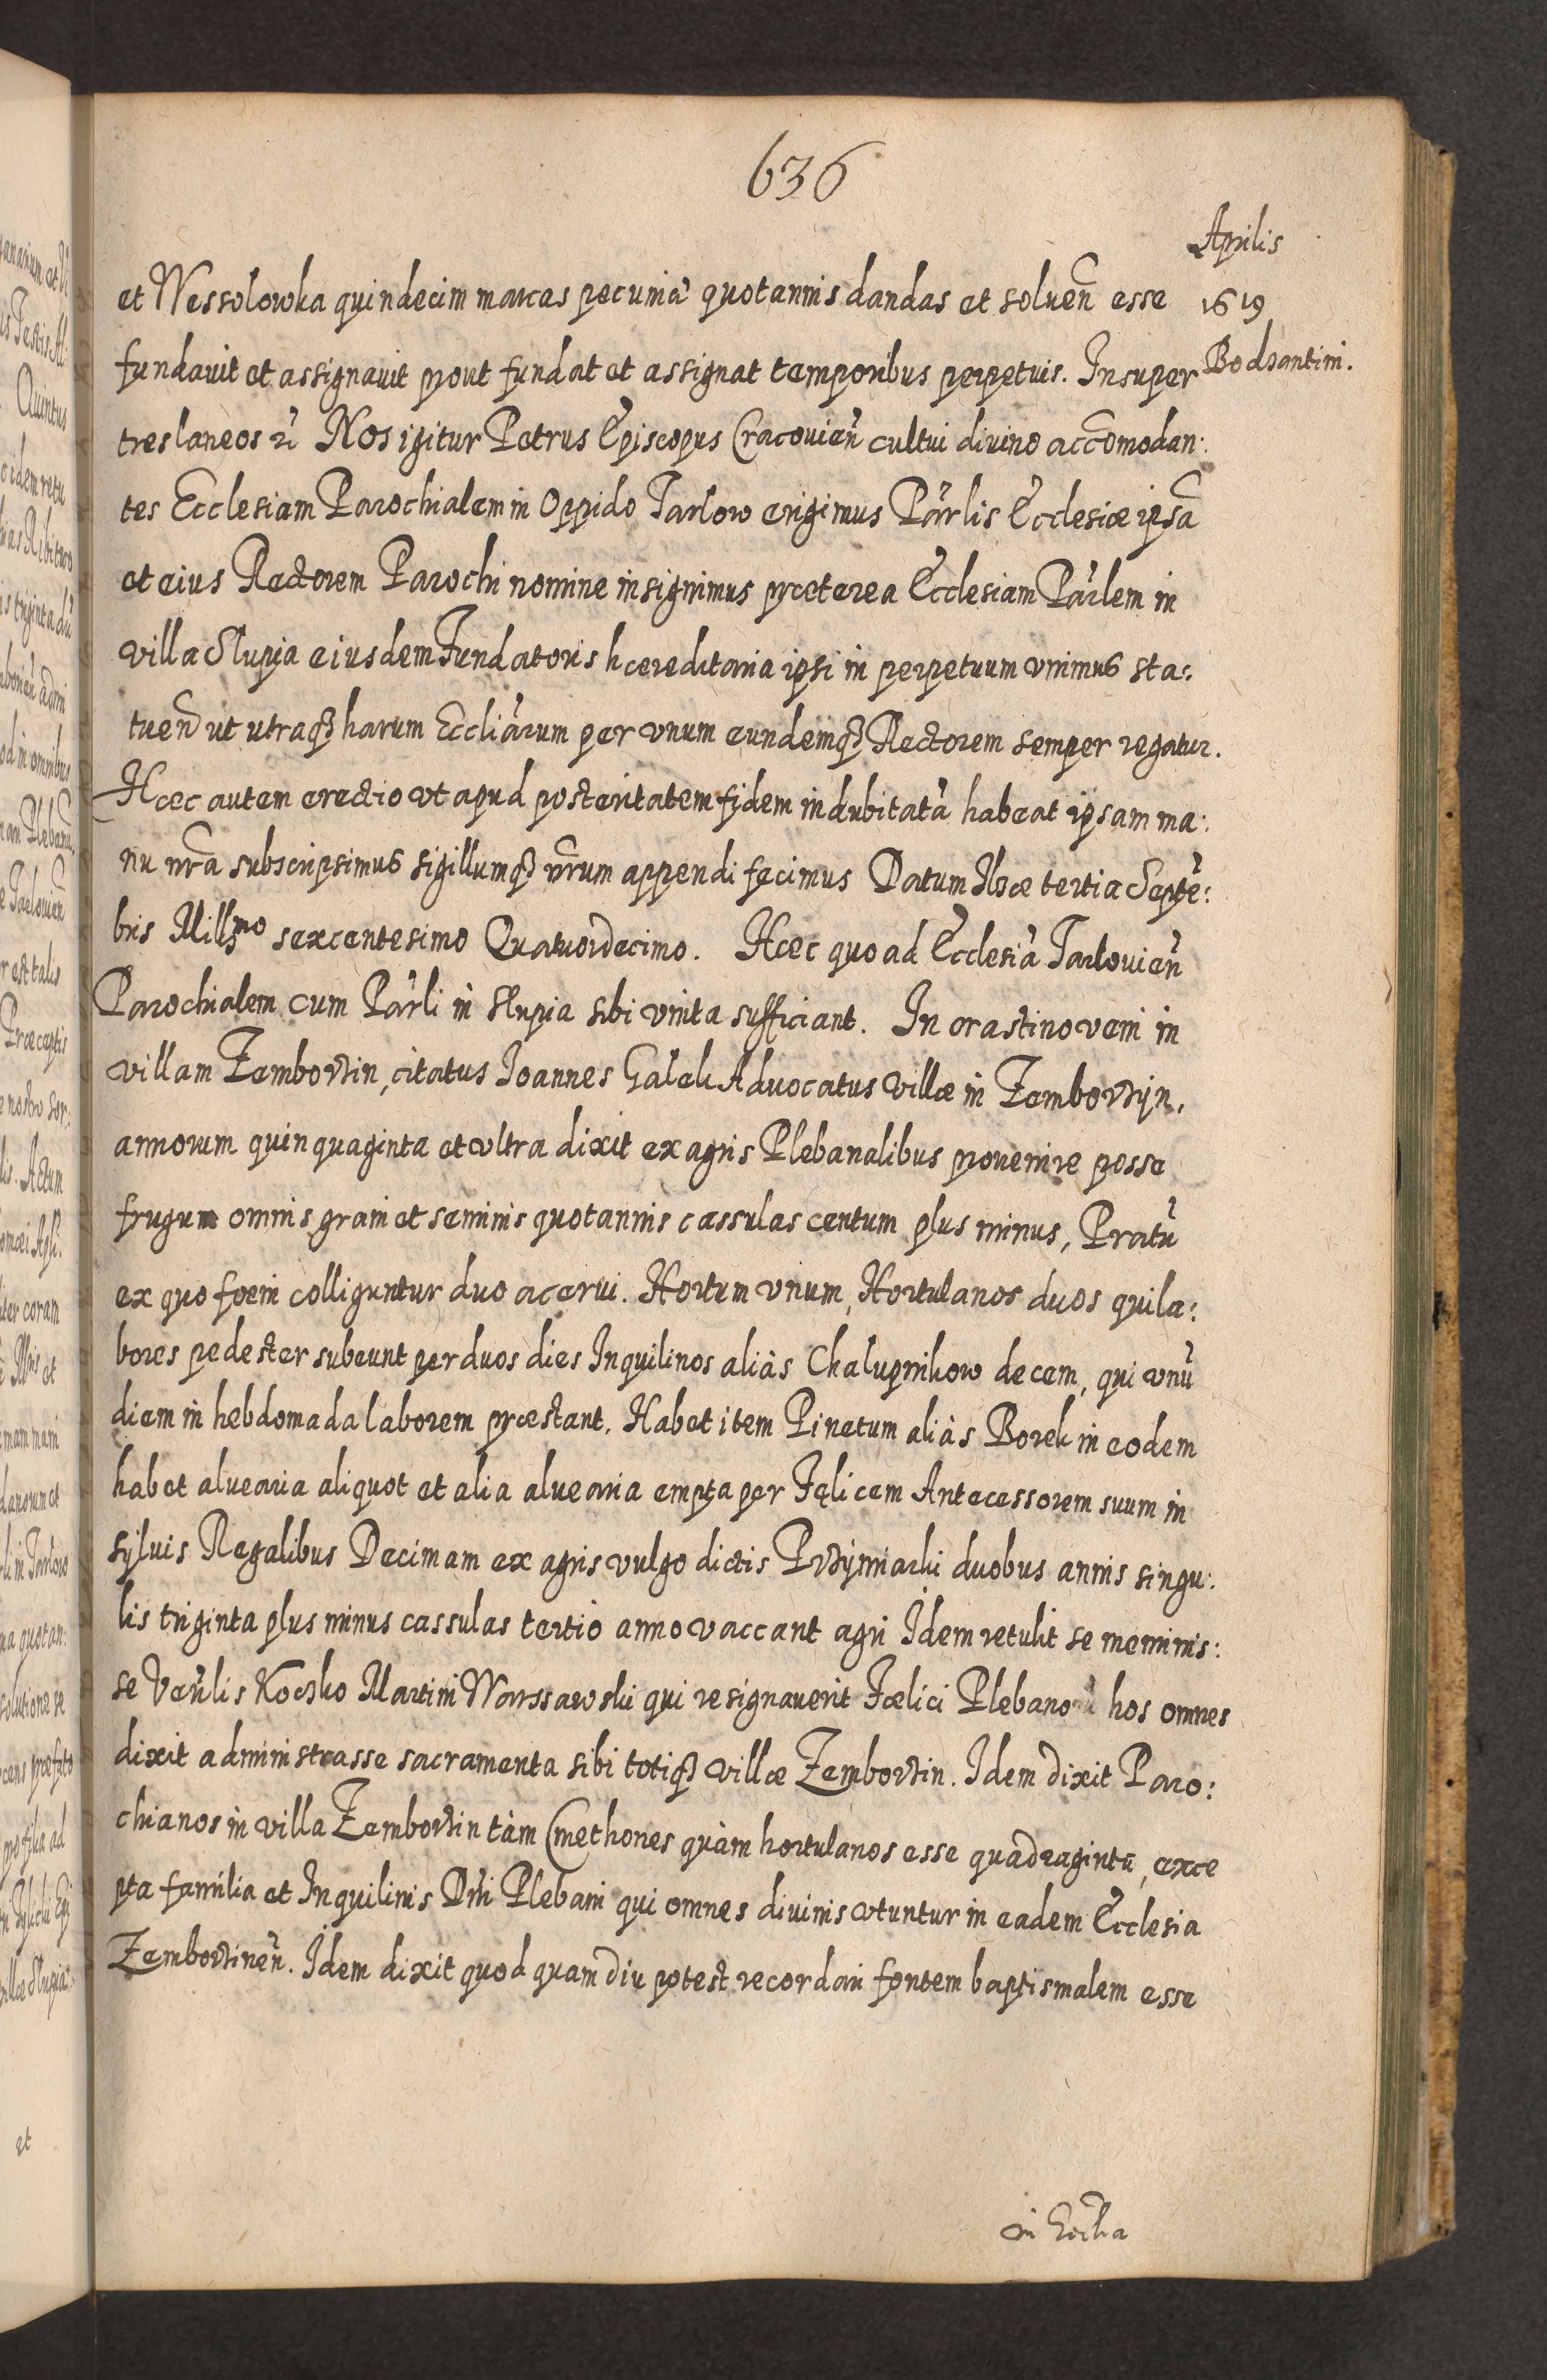 636
Aprilis
1619
Bodzantini.
et Wessolowka quindecim marcas pecuniā quotannis dandas et soluen̄ esse
fundauit et assignauit prout fundat et assignat temporibus perpetuis. Insuper
tres laneos Nos igitur Petrus Episcopus Cracouien̄ cultui diuino accōmodan:
tes Ecclesiam Parochialem in Oppido Tarlow erigimus Pārlis Ecclesiæ ipsā
et eius Rectorem Parochi nomine insignimus præterea Ecclesiam Pārlem in
villa Slupia eiusdem Fundatoris hæreditaria ipsi in perpetuum vnimus sta:
tuen̄ ut utraqꝫ harum Eccliārum per vnum eundemqꝫ Rectorem semper regatur.
Hæc autem erectio vt apud posteritatem fidem indubitatā habeat ipsam ma:
nu nr̄a subscripsimus sigillumqꝫ nr̄um appendi fecimus Datum Ilzæ tertia Septē:
bris Mill̄mo sexcentesimo Quatuordecimo. Hæc quo ad Ecclesiā Tarlouien̄
Parochialem cum Pārli in Slupia sibi vnita sufficiant. In crastino veni in
villam Zemborzin, citatus Ioannes Galek Aduocatus villæ in Zemborzyn,
annorum quinquaginta et vltra dixit ex agris Plebanalibus prouenire posse
frugum omnis grani et seminis quotannis cassulas centum plus minus, Pratū
ex quo foeni colliguntur duo acerui. Hortum vnum, Hortulanos duos qui la:
bores pedester subeunt per duos dies Inquilinos aliàs Chalupnikow decem, qui vnū
diem in hebdomada laborem præstant. Habet item Pinetum aliàs Borek in eodem
habet aluearia aliquot et alia aluearia empta per Fęlicem Antecessorem suum in
syluis Regalibus Decimam ex agris vulgo dictis Przymiarki duobus annis singu:
lis triginta plus minus cassulas tertiò anno vaccant agri Idem retulit se meminis:
se Ven̄lis Koczko Martini Warssawski qui resignauerit Fælici Plebano hos omnes
dixit administrasse sacramenta sibi totiqꝫ villæ Zemborzin. Idem dixit Paro:
chianos in villa Zemborzin tàm Cmethones quàm hortulanos esse quadraginta, exce
pta familia et Inquilinis Dn̄i Plebani qui omnes diuinis vtuntur in eadem Ecclesia
Zemborzinen̄. Idem dixit quod quam diu potest recordari fontem baptismalem esse
in